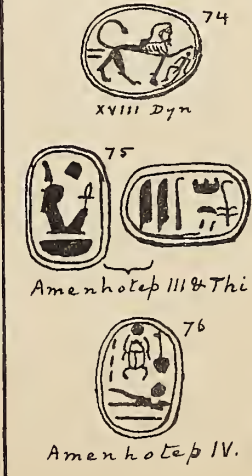 74
XVIII Dyn
75
Amenhotep III & Thi
76
Amenhotep IV.